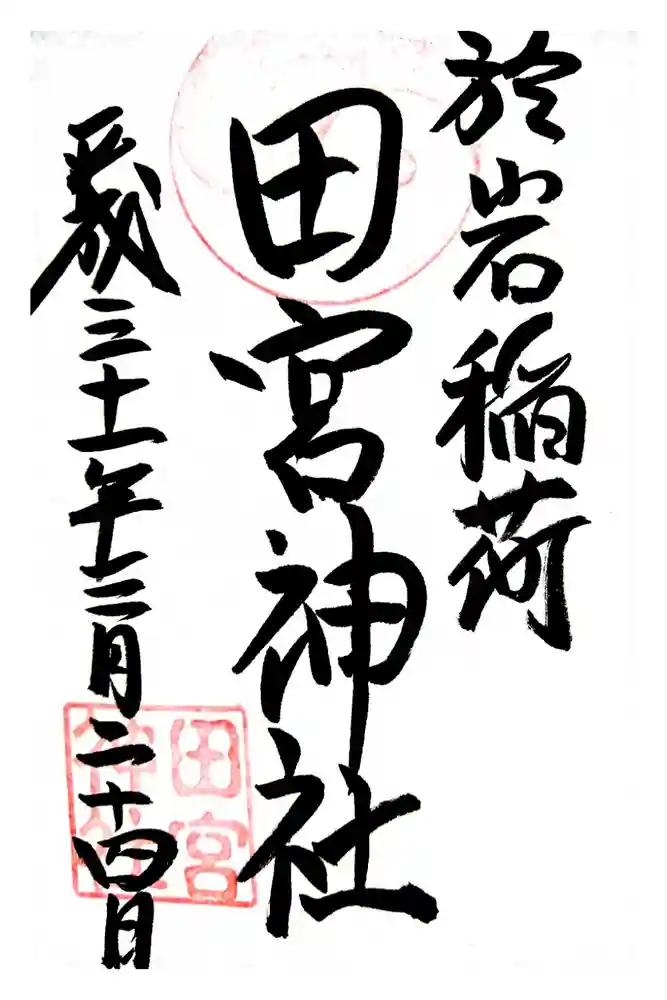 於岩稲荷
田宮神社
平成三十一年十二月二十四日
田宮
神社